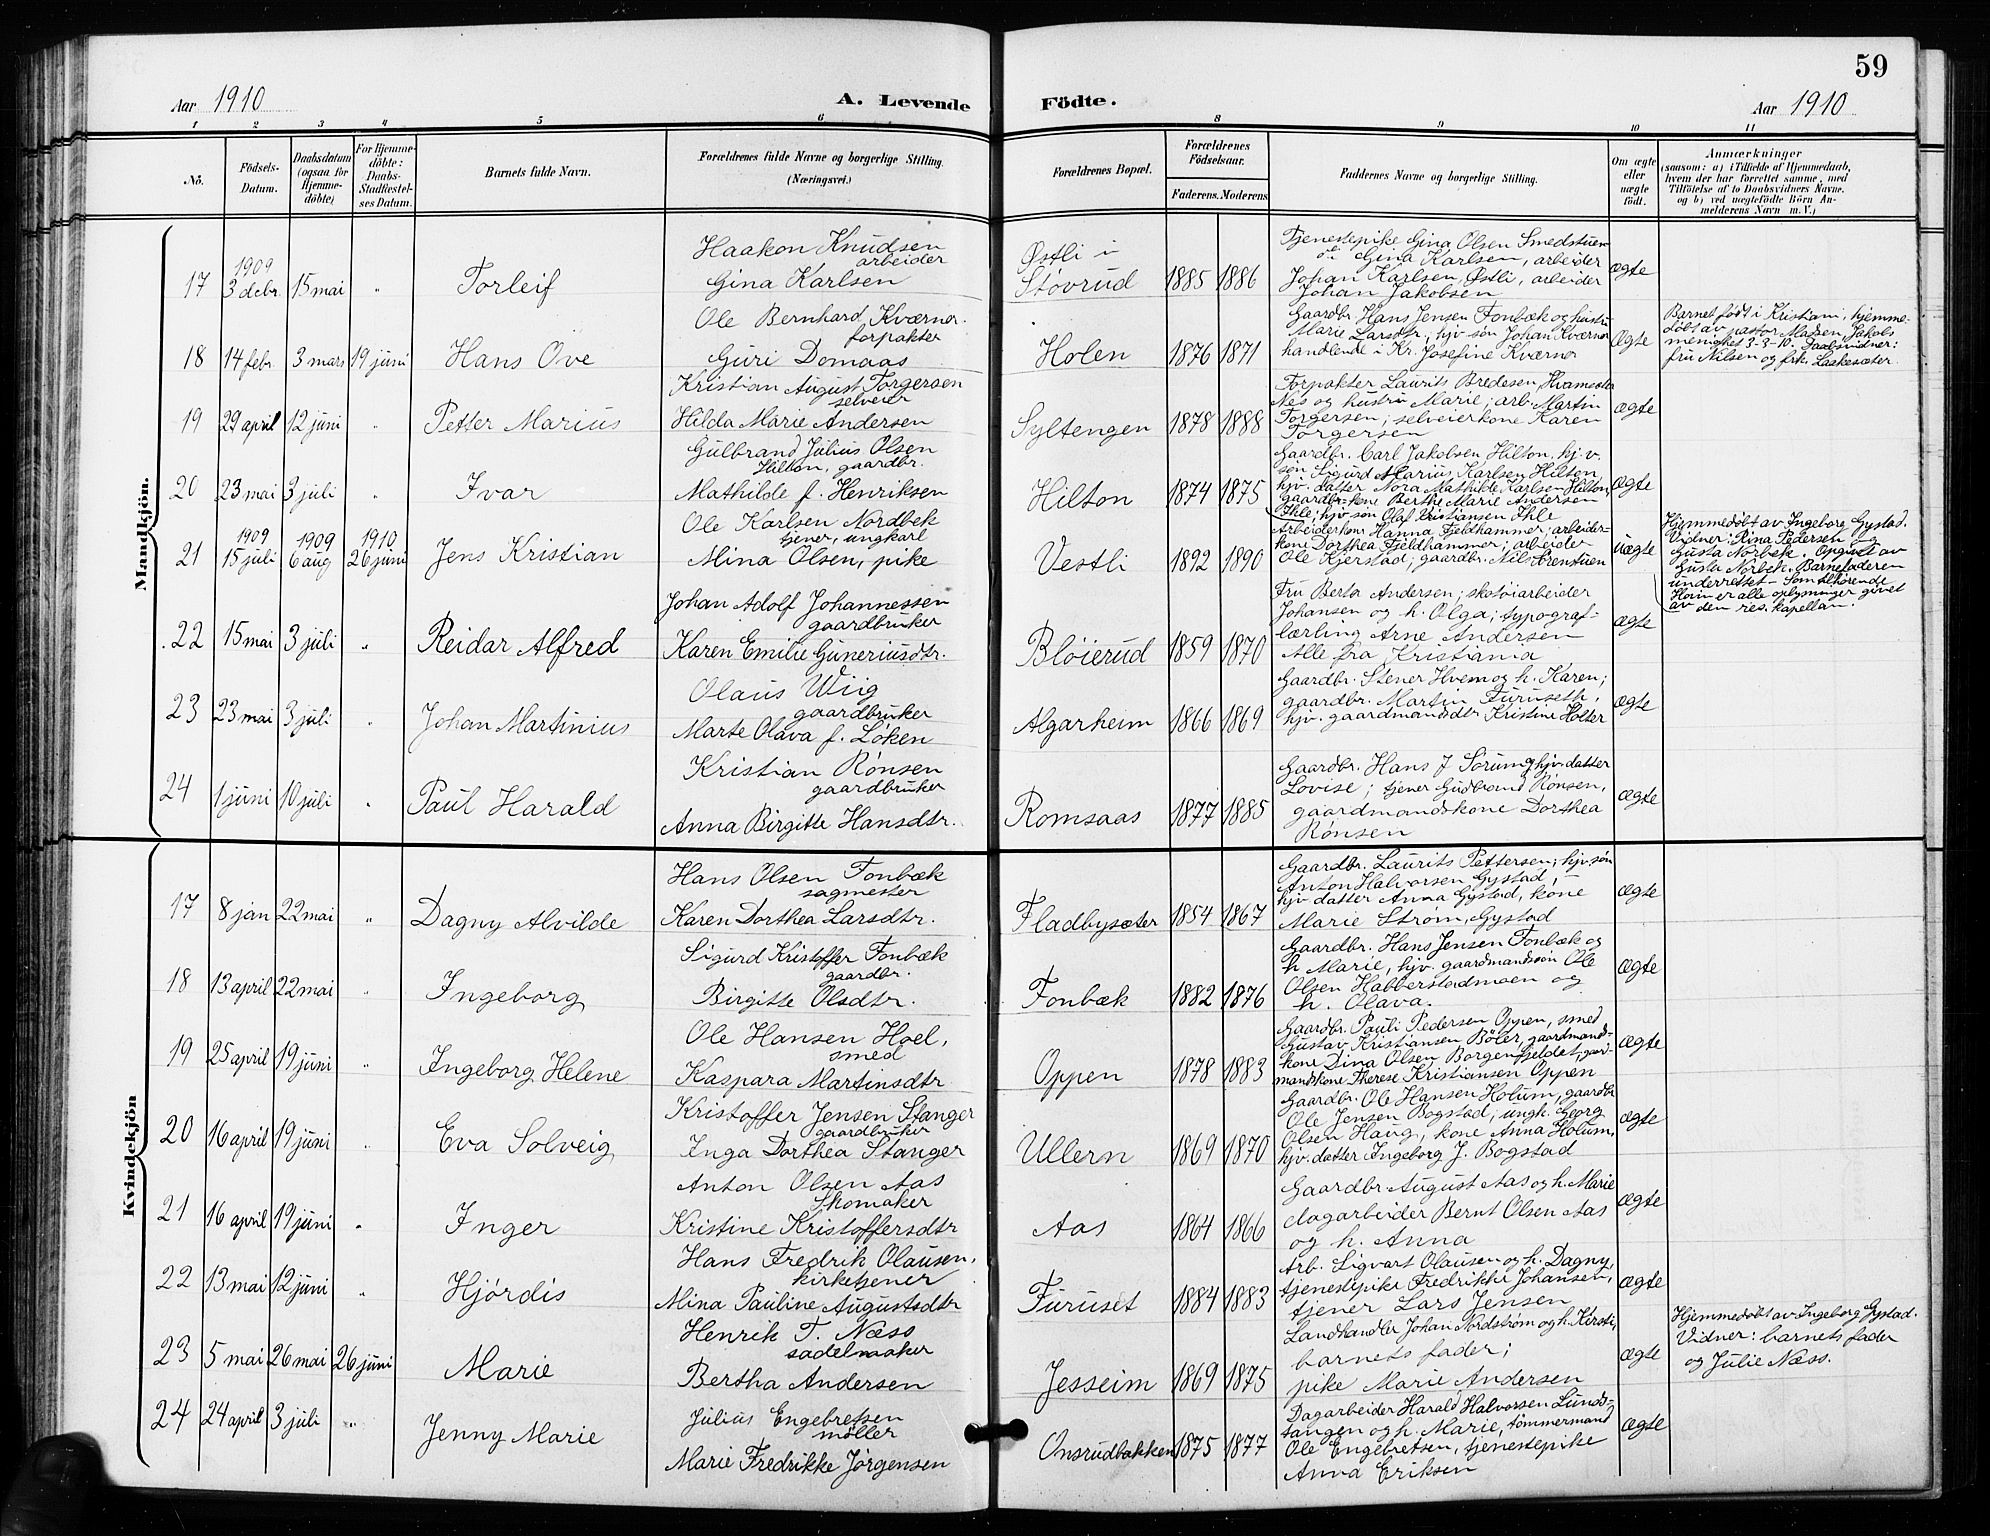 59
Aar 1910
A. Levende
Födte.
Aar 1910
1 2 3 4 5 6 8 9 10 11
Nô.
Födsels-
Datum.
Daabsdatum
(ogsaa for
Hjemme-
döbte)
For Hjemme-
döbte:
Daabs-
Stadfæstel-
ses Datum.
Barnets fulde Navn.
Forældrenes fulde Navne og borgerlige Stilling.
(Næringsvei.)
Forældrenes Bopæl.
Forældrenes
Födselsaar.
Faderens. Moderens
Faddernes Navne og borgerlige Stilling.
Om ægte
eller
uægte
födt.
Anmærkninger
(saasom: a) i Tilfælde af Hjemmedaab,
hvem der har forrettet samme, med
Tilföielse af to Daabsvidners Navne.
og b) ved uægtefödte Börn An-
melderens Navn m. V.)
Mandkjön.
17
1909
3 debr.
15 mai
"
Torleif
Haakon Knudsen
arbeider
Gina Karlsen
Østli i
Støvrud
1885
1886
Tjenestepike Gina Olsen Smedstuen
Gina Karlsen, arbeider
Johan Karlsen, Østli, arbeider
Johan Jakobsen
ægte
18
14 febr.
3 mars
19 juni
Hans Ove
Ole Bernhard Kværner
forpakter
Guri Domaas
Holen
1876
1871
Gaardbr. Hans Jensen Fonbæk og hustru
Marie Larsdtr., hjv. søn Johan Kværner
handlende i Kr. Josefine Kværner
Ægte
Barnet født i Kristiani, hjemme-
døbt av pastor Madsen, Jakobs
menighet 3-3-10. Daabsvidner:
fru Nilsen og frk. Laakesæter.
19
29 april
12 juni
"
Petter Marius
Kristian August Torgersen
selveier
Hilda Marie Andersen
Syltengen
1878
1888
Forpakter Laurits Bredesen, Hvamseter
Nes og hustru Marie; arb. Martin
Torgersen; selveierkone Karen
Torgersen
ægte
20
23 mai
3 juli
"
Ivar
Gulbrand Julius Olsen
Hilton, gaardbr.
Mathilde f. Henriksen
Hilton
1874
1875
Gaardbr. Carl Jakobsen Hilton, hj.v.
søn Sigurd Marius Karlsen Hilton,
hjv. datter Nora Mathilde Karlsen Hilton,
gaardbr-kone Berthe Marie Andersen
Ihle; hjv. søn Olaf Kristiansen Ihle
ægte
21
1909
15 juli
1909
6 aug
1910
26 juni
Jens Kristian
Ole Karlsen Nordbek
tjener, ungkarl
Mina Olsen, pike
Vestli
1892
1890
Arbeiderkone Hanna Fjeldhammer, arbeider-
kone Dorthea Fjeldhammer; arbeider
Ole Kjerstad; gaardbr. Nils Brenstuen
uægte
Hjemmedøbt av Ingeborg Gystad.
Vidner: Rina Pedersen og
Gusta Norbek. Opgivet av
Gusta Norbek. Barnefaderen
underrettet – Som tilhørende
Hovin er alle oplysninger givet
av den res. kapellan.
22
15 mai
3 juli
"
Reidar Alfred
Johan Adolf Johannessen
gaardbruker
Karen Emilie Guneriusdtr.
Bløierud
1859
1870
Fru Berta Andersen; skotøiarbeider
Johansen og h. Olga; typograf-
lærling Arne Andersen
Alle fra Kristiania
ægte
23
23 mai
3 juli
"
Johan Martinius
Olaus Wiig
gaardbruker
Marte Olava f. Løken
Algarheim
1866
1869
Gaardbr. Stener Hvem og h. Karen;
gaardbr. Martin Furuseth,
hjv. gaardmandsdtr. Kristine Holter
ægte
24
1 juni
10 juli
"
Paul Harald
Kristian Rønsen
gaardbruker
Anna Birgitte Hansdtr.
Romsaas
1877
1885
Gaardbr. Hans J Sørum, hjv. datter
Lovise; tjener Gudbrand Rønsen,
gaardmandskone Dorthea
Rønsen
ægte
Kvindekjön
17
8 jan
22 mai
"
Dagny Alvilde
Hans Olsen Fonbæk
sagmester
Karen Dorthea Larsdtr.
Fladbysæter
1854
1867
Gaardbr. Laurits Pettersen; hjv. søn
Anton Halvorsen Gystad;
hjv datter Anna Gystad, kone
Marie Strøm, Gystad
ægte
18
13 april
22 mai
"
Ingeborg
Sigurd Kristoffer Fonbæk
gaardbr.
Birgitte Olsdtr.
Fonbæk
1882
1876
Gaardbr. Hans Jensen Fonbæk og
h Marie, hjv. gaardmandssøn Ole
Olsen Habberstadmoen og
h. Olava.
ægte
19
25 april
19 juni
"
Ingeborg Helene
Ole Hansen Hoel,
smed
Kaspara Martinsdtr
Oppen
1878
1883
Gaardbr. Pauli Pedersen Oppen, smed
Gustav Kristiansen Böler, gaardmands-
kone Dina Olsen Borgenfjeldet, gaard-
mandskone Therese Kristiansen Oppen
ægte
20
16 april
19 juni
"
Eva Solveig
Kristoffer Jensen Stanger
gaardbruker
Inga Dorthea Stanger
Ullern
1869
1870
Gaardbr. Ole Hansen Holum, gaardbr
Ole Jensen Bogstad; ungk. Georg
Olsen Haug, kone Anna Holum,
hjv. datter Ingeborg J. Bogstad
ægte
21
16 april
19 juni
"
Inger
Anton Olsen Aas
Skomaker
Kristine Kristoffersdtr
Aas
1864
1866
Gaardbr. August Aas og h. Marie
dagarbeider Bernt Olsen Aas
og h. Anna
ægte
22
13 mai
12 juni
"
Hjørdis
Hans Fredrik Olausen,
kirketjener
Mina Pauline Augustsdtr
Furuset
1884
1883
Arb. Sigvart Olausen og h. Dagny,
tjenestepike Fredrikke Johansen,
tjener Lars Jensen
ægte
23
5 mai
26 mai
26 juni
Marie
Henrik T. Næss
sadelmaker
Bertha Andersen
Jesseim
1869
1875
Landhandler Johan Nordstrøm og h. Kirsti,
barnets fader;
pike Marie Andersen
ægte
Hjemmedøbt av Ingeborg Gystad.
Vidner: barnets fader
og Julie Næss.
24
24 april
3 juli
"
Jenny Marie
Julius Engebretsen
møller
Marie Fredrikke Jørgensen
Onsrudbakken
1875
1877
Dagarbeider Harald Halvorsen Lunds-
tangen og h. Marie, tømmermand
Ole Engebretsen, tjenestepike
Anna Eriksen
ægte